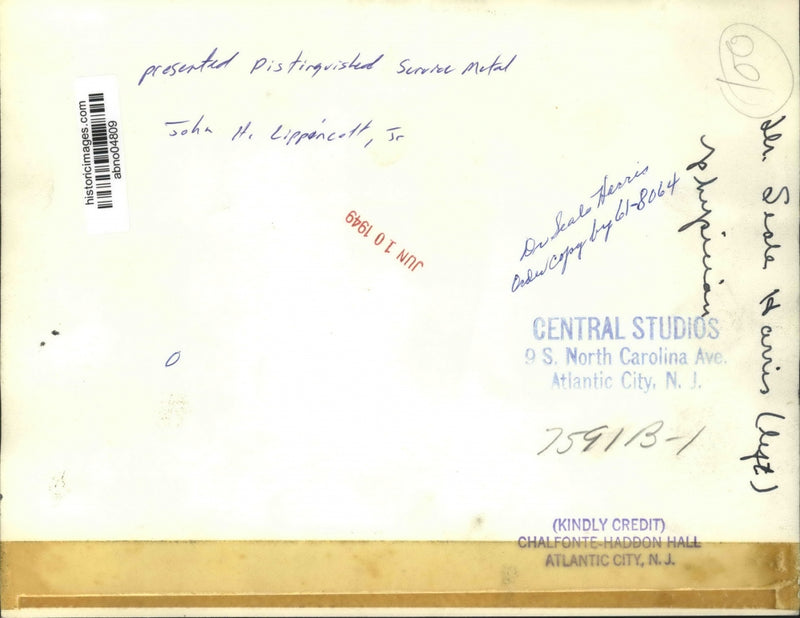 presented Distinguished Service Metal
John H. Lippincott, Jr
historicimages.com
abno04809
JUN 10 1949
Dr Seale Harris
Order copy by 61-8064
Dr. Seale Harris (left)
physician
CENTRAL STUDIOS
9 S. North Carolina Ave.
Atlantic City, N. J.
7591B-1
(KINDLY CREDIT)
CHALFONTE-HADDON HALL
ATLANTIC CITY, N. J.